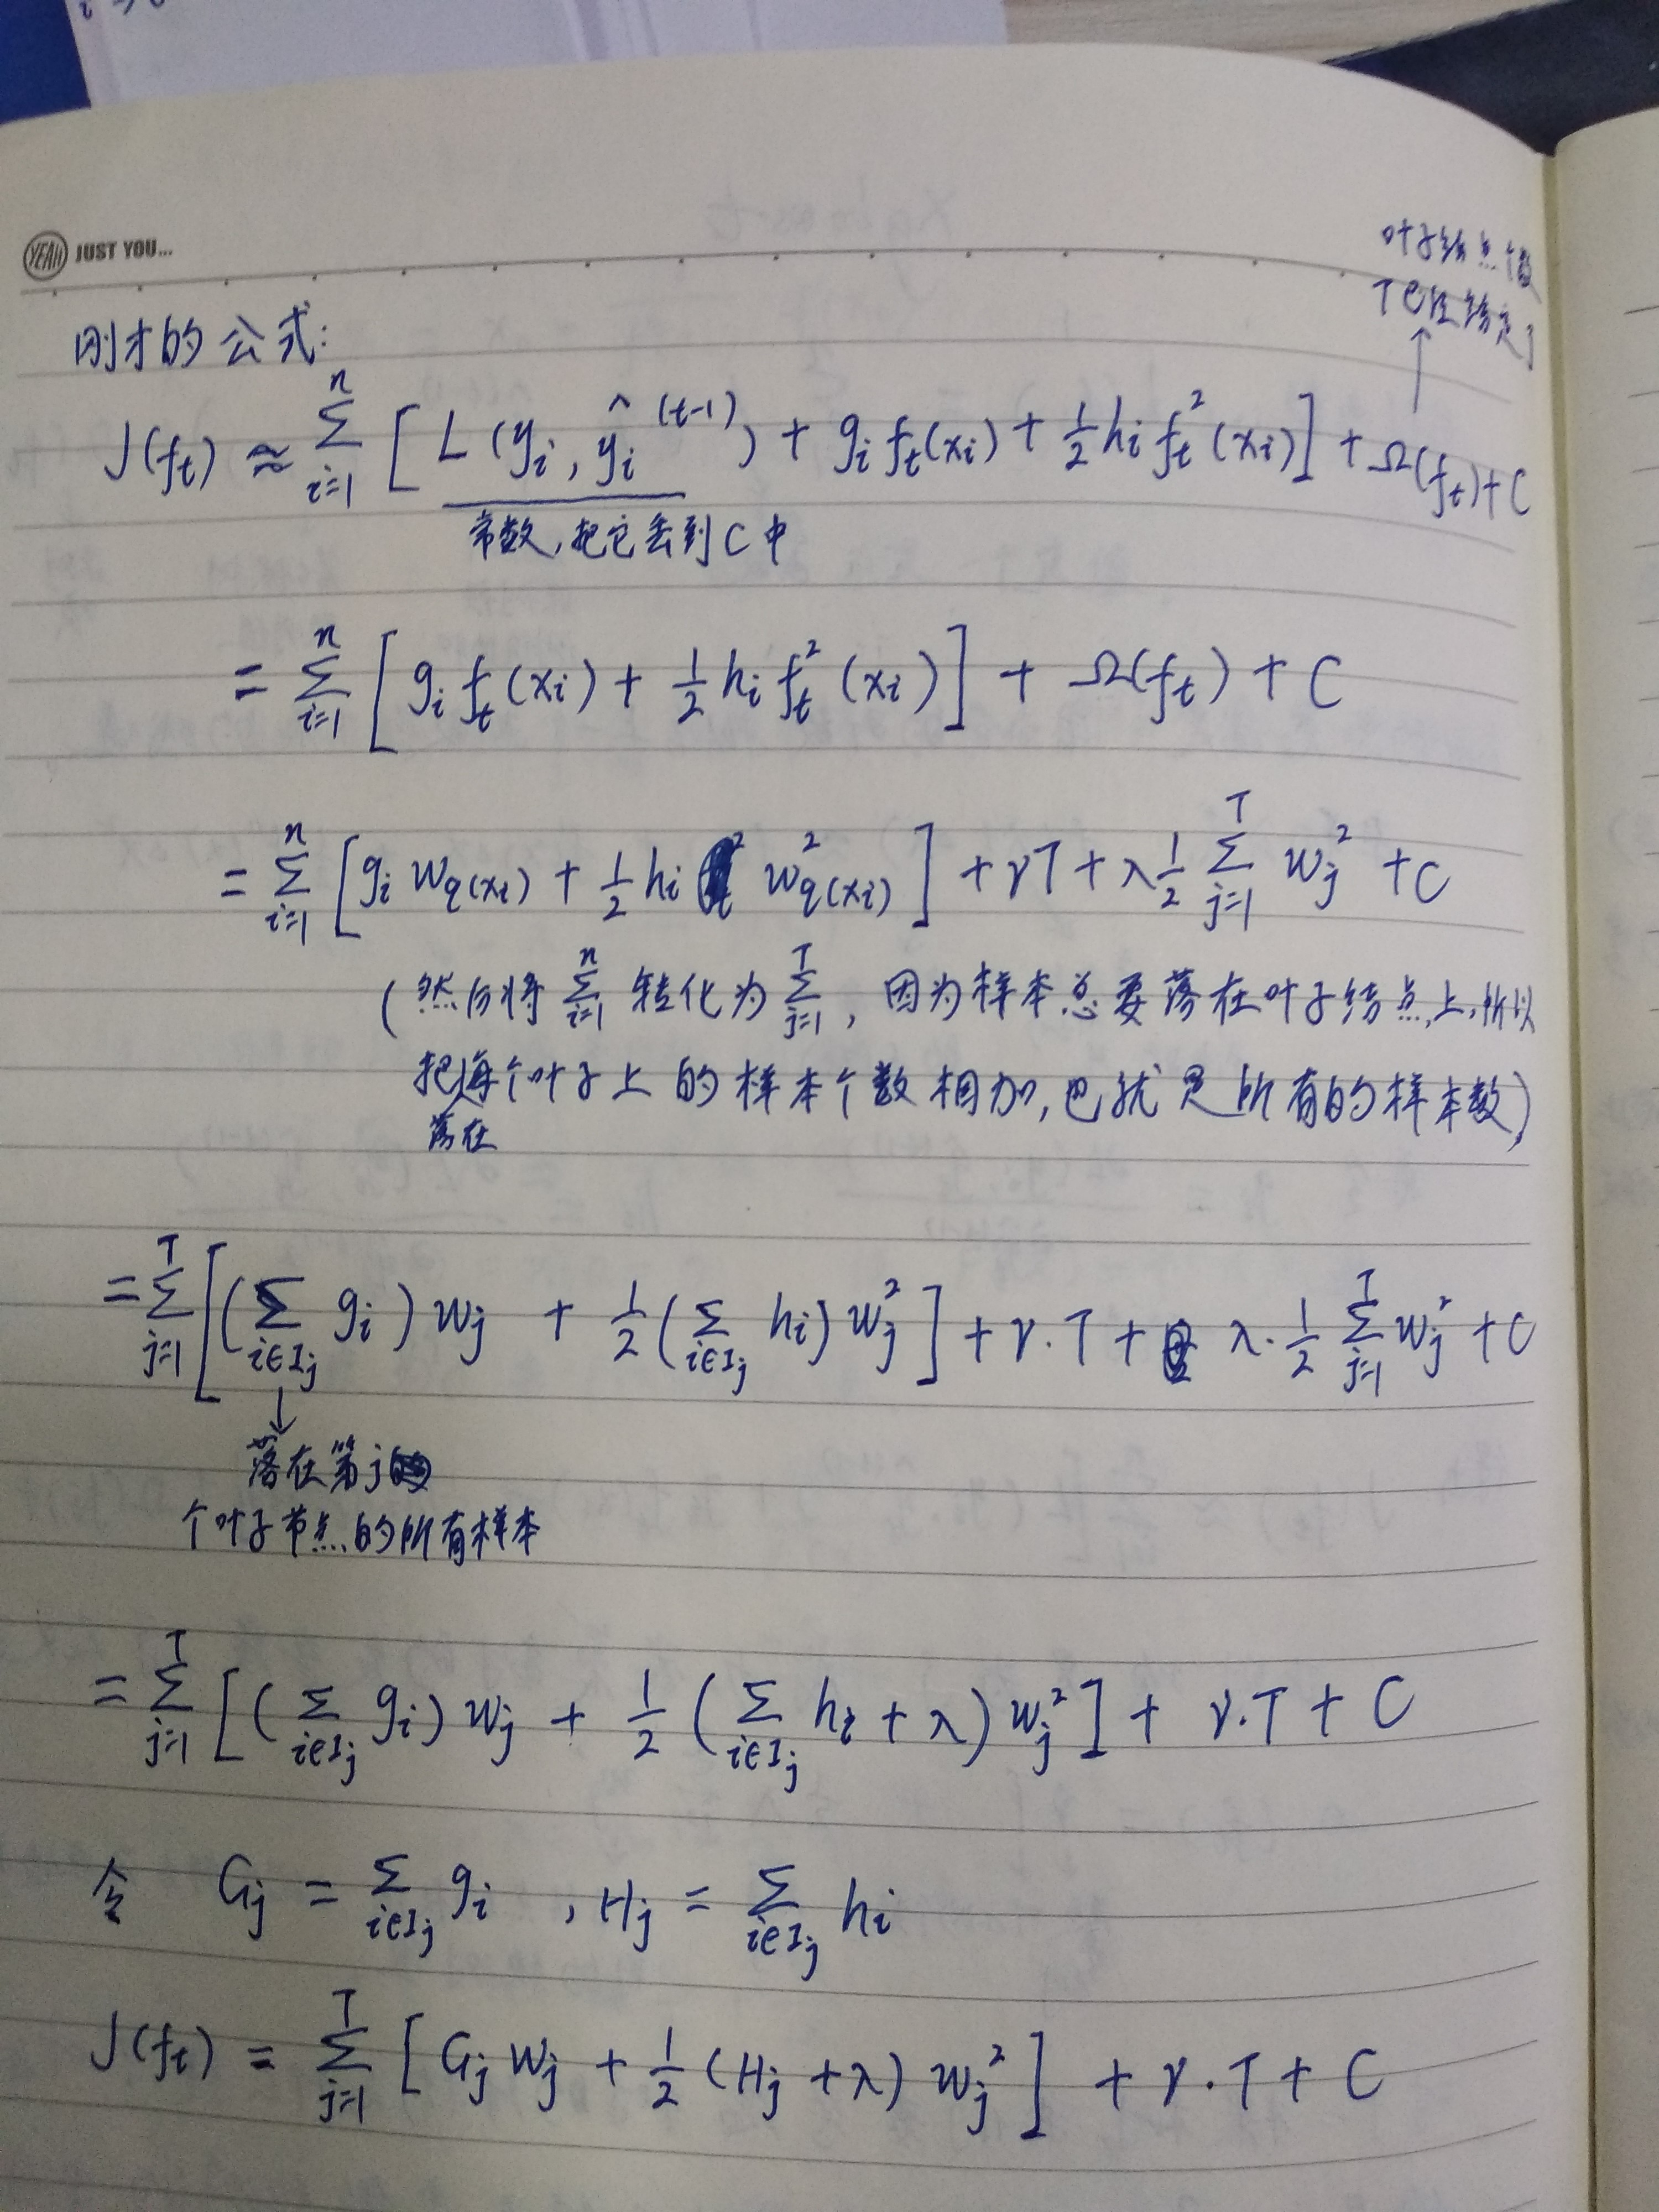 YEAH JUST YOU...
叶子结点个数
T已经给定了
刚才的公式:
J(f_t) ≈ \sum_{i=1}^{n} [ L(y_i, \hat{y}_i^{(t-1)}) + g_i f_t(x_i) + \frac{1}{2} h_i f_t^2(x_i) ] + Ω(f_t) + C
常数,把它丢到C中
= \sum_{i=1}^{n} [ g_i f_t(x_i) + \frac{1}{2} h_i f_t^2(x_i) ] + Ω(f_t) + C
= \sum_{i=1}^{n} [ g_i w_{q(x_i)} + \frac{1}{2} h_i w_{q(x_i)}^2 ] + γT + λ\frac{1}{2} \sum_{j=1}^{T} w_j^2 + C
(然后将 \sum_{i=1}^{n} 转化为 \sum_{j=1}^{T}, 因为样本总要落在叶子结点上,所以
把每个叶子上的样本个数相加,也就是所有的样本数)
落在
= \sum_{j=1}^{T} [ (\sum_{i∈I_j} g_i) w_j + \frac{1}{2} (\sum_{i∈I_j} h_i) w_j^2 ] + γ·T + λ·\frac{1}{2} \sum_{j=1}^{T} w_j^2 + C
↓
落在第j
个叶子节点的所有样本
= \sum_{j=1}^{T} [ (\sum_{i∈I_j} g_i) w_j + \frac{1}{2} (\sum_{i∈I_j} h_i + λ) w_j^2 ] + γ·T + C
令 G_j = \sum_{i∈I_j} g_i , H_j = \sum_{i∈I_j} h_i
J(f_t) = \sum_{j=1}^{T} [ G_j w_j + \frac{1}{2} (H_j + λ) w_j^2 ] + γ·T + C